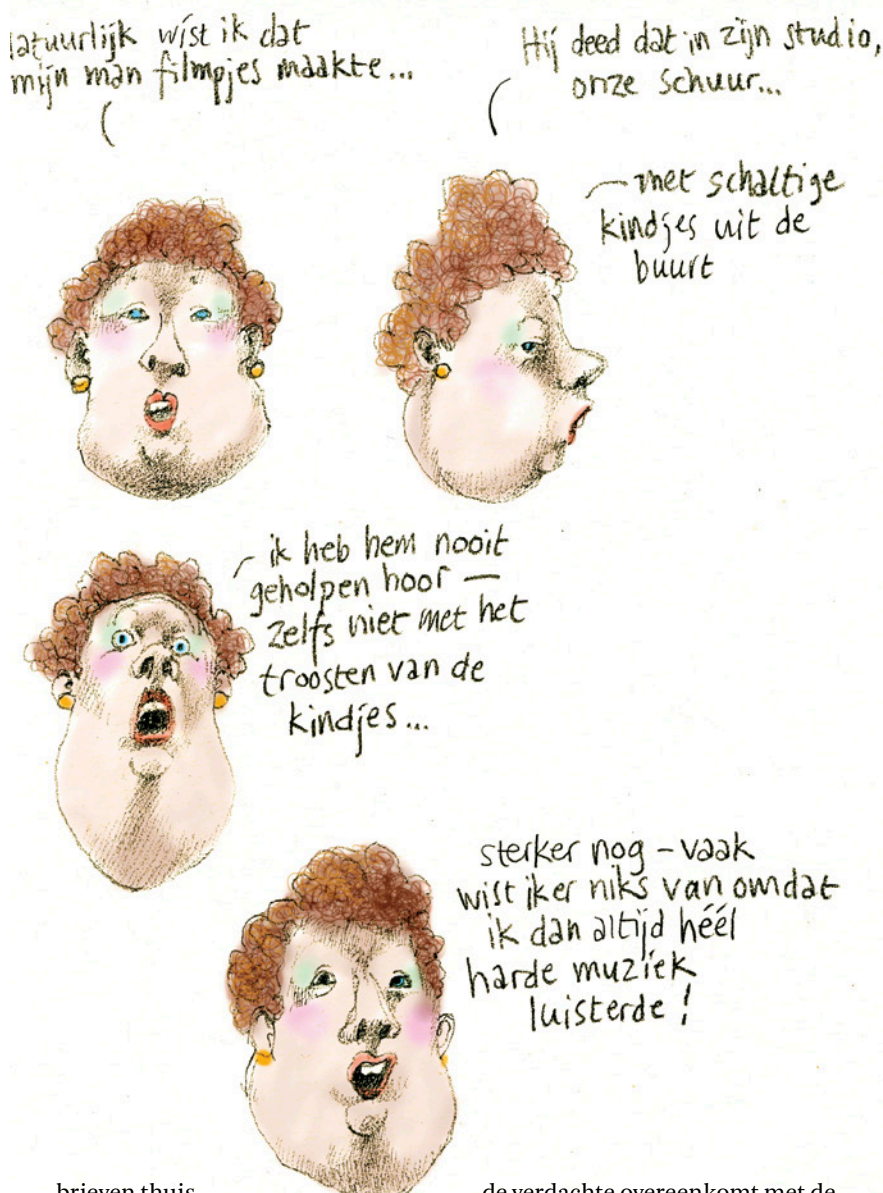 natuurlijk wíst ik dat
mijn man filmpjes maakte...
Hij deed dat in zijn studio,
onze schuur...
met schattige
kindjes uit de
buurt
ik heb hem nooit
geholpen hoor —
zelfs niet met het
troosten van de
kindjes...
sterker nog – vaak
wist ik er niks van omdat
ik dan altijd héél
harde muziek
luisterde!
brieven thuis
de verdachte overeenkomt met de